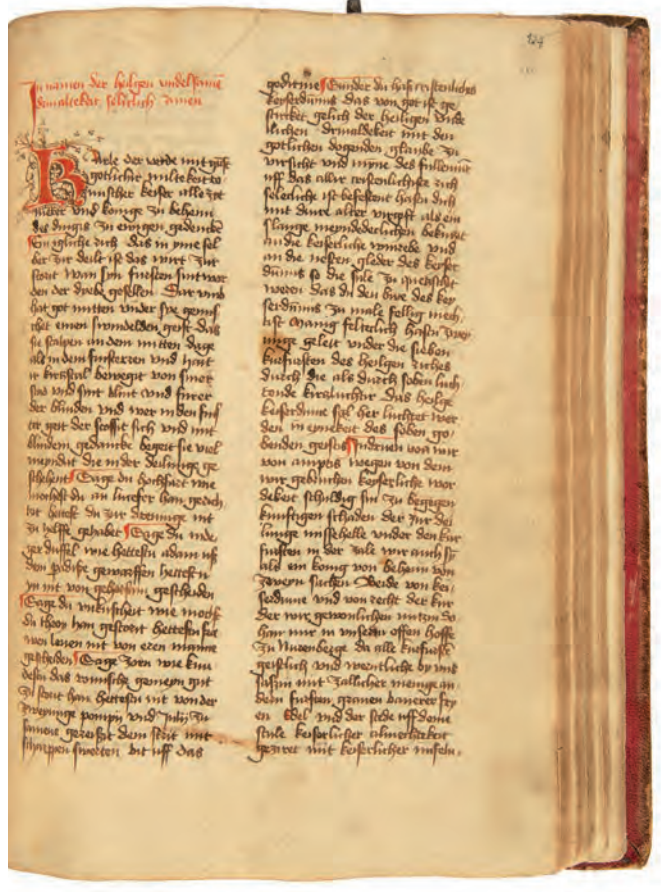 124
In namen der heilgen undelsamē
drivaltekār selielich Amen
Karle der vierde mit gots
gotlicher miltekeit ro
mischer keiser alle zyt
merer und konige zu beheim
des dingis zu ewigen gedencke
Ein igliche rich das in yme sel
ber zur deilt ist das wirt zur
stort wan syn fursten sint wor
den der dybe gesellen Dar umb
hat got mitten under sye gemis
chet einen swindelden geist das
sie tasten an dem mitten dage
als in dem finsterren und hait
ir kerzstal bewegit von siner
stad und sint blint und furer
der blinden und wer in dem fins
ter geit der stossit sich und mit
blindem gedancke begent sie viel
meyndat die in der deilunge ge
schehent Sage du hochfart wie
mochest du an lucifer han gerich
tit hettest du zur drennunge nit
zu helffe gehabet Sage du nide
ger dufel wie hettestu adam uß
dem padise geworffen hettestu
yn nit von gehorsam gescheiden
Sage du unkuscheit wie mocht
du troyan han gestoret hettestu fra
wen lenen nit von eren manne
gescheiden Sage zorn wie kun
destu das romische gemeyn gut
zu stort han hettestu nit von der
zweyunge pompij und Julij zu
samene gereißt dem strit mit
scharppen swerten bit uff das
godirme Sunder du hast cristenliches
keiserdums das von got ist ge
stercket gelich der heiligen unde
lichen drivaldekeit mit den
gotlichen dogenden glaube zu
virsicht und myne des fullemūt
uff das aller cristenlichiste rich
selecliche ist befestent hastu dich
mit dime alter virgift als ein
slange meyndedeclichen bekirret
an die keiserliche winrebe und
an die nesten gleder des keiser
dūms so die sule zu quetschit
weren das du den bwe des key
serdūms zu male fellig mech
tist Manig feltelich hastu zwey
unge geleit under die sieben
kurfursten des heilgen riches
durch die als durch soben luch
tende kerzluchter das heilge
keiserdume sal her luchtet wer
den in eynekeit des soben go
benden geistis Indruen wan wir
von amptis wegen von dem
wir gebruchen keiserliche wir
dekeit schuldig sin zu begegen
kunftigen schaden der zur dei
lunge missehelle under den kur
fursten in der zale wir auch sy
als ein konig von beheim von
zweyn sachen Beide von kei
serdume und von recht der kur
der wir gewonlichen nutzin do
han wir in unserm offen hoffe
zu Nurenberge da alle kurfurst
geistlich und werntliche by uns
saszin mit zallicher menige an
dern fursten graven banerer fry
en edel und der stede uff deme
stule keiserlicher almechtekeit
geziret mit keiserlicher infeln